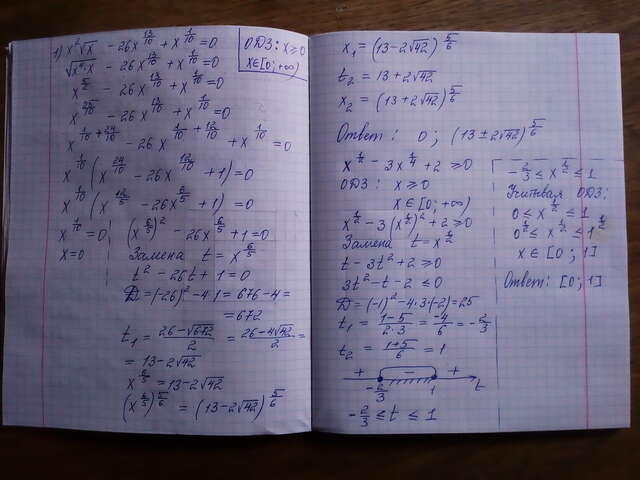 1) x²√x - 26x^(13/10) + x^(1/10) = 0
ОДЗ: x ≥ 0
x∈[0; +∞)
√(x⁴·x) - 26x^(13/10) + x^(1/10) = 0
x^(5/2) - 26x^(13/10) + x^(1/10) = 0
x^(25/10) - 26x^(13/10) + x^(1/10) = 0
x^(1/10 + 24/10) - 26x^(1/10 + 12/10) + x^(1/10) = 0
x^(1/10) (x^(24/10) - 26x^(12/10) + 1) = 0
x^(1/10) (x^(12/5) - 26x^(6/5) + 1) = 0
x^(1/10) = 0
x = 0
(x^(6/5))² - 26x^(6/5) + 1 = 0
Замена t = x^(6/5)
t² - 26t + 1 = 0
D = (-26)² - 4·1 = 676 - 4 =
= 672
t₁ = (26 - √672)/2 = (26 - 4√42)/2 =
= 13 - 2√42
x^(6/5) = 13 - 2√42
(x^(6/5))^(5/6) = (13 - 2√42)^(5/6)
x₁ = (13 - 2√42)^(5/6)
t₂ = 13 + 2√42
x₂ = (13 + 2√42)^(5/6)
Ответ: 0; (13 ± 2√42)^(5/6)
ОДЗ: x ≥ 0
x∈[0; +∞)
Замена
t - 3t² + 2 ≥ 0
3t² - t - 2 ≤ 0
D = (-1)² - 4·3·(-2) = 25
t₁ = (1-5)/(2·3) = -4/6 = -2/3
t₂ = (1+5)/6 = 1
+ - +
-2/3 1 t
-2/3 ≤ t ≤ 1
Учитывая ОДЗ:
x∈[0; 1]
Ответ: [0; 1]